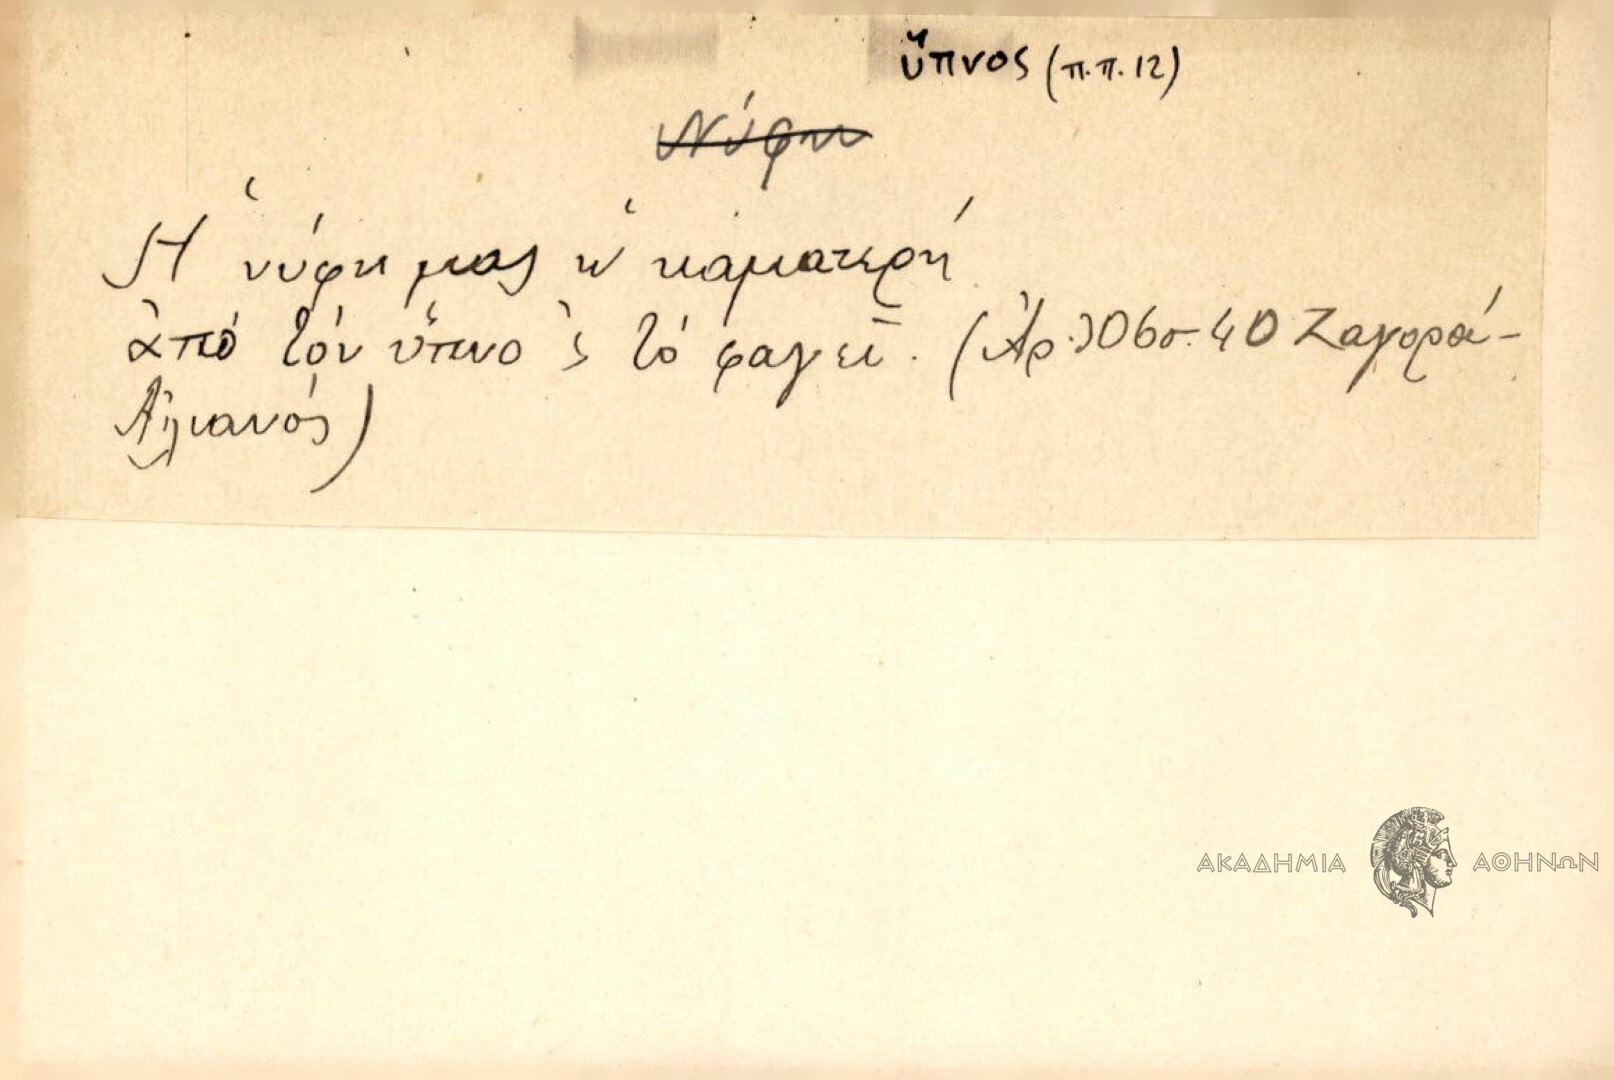 ὕπνος (π.π. 12)
Νύφη
Ἡ νύφη μας ἡ καματερή
ἀπό τόν ὕπνο ς τό φαγεῖ. (Ἀρ. 106 σ. 40 Ζαγορά-
Ἁλιανός)
ΑΚΑΔΗΜΙΑ ΑΘΗΝΩΝ